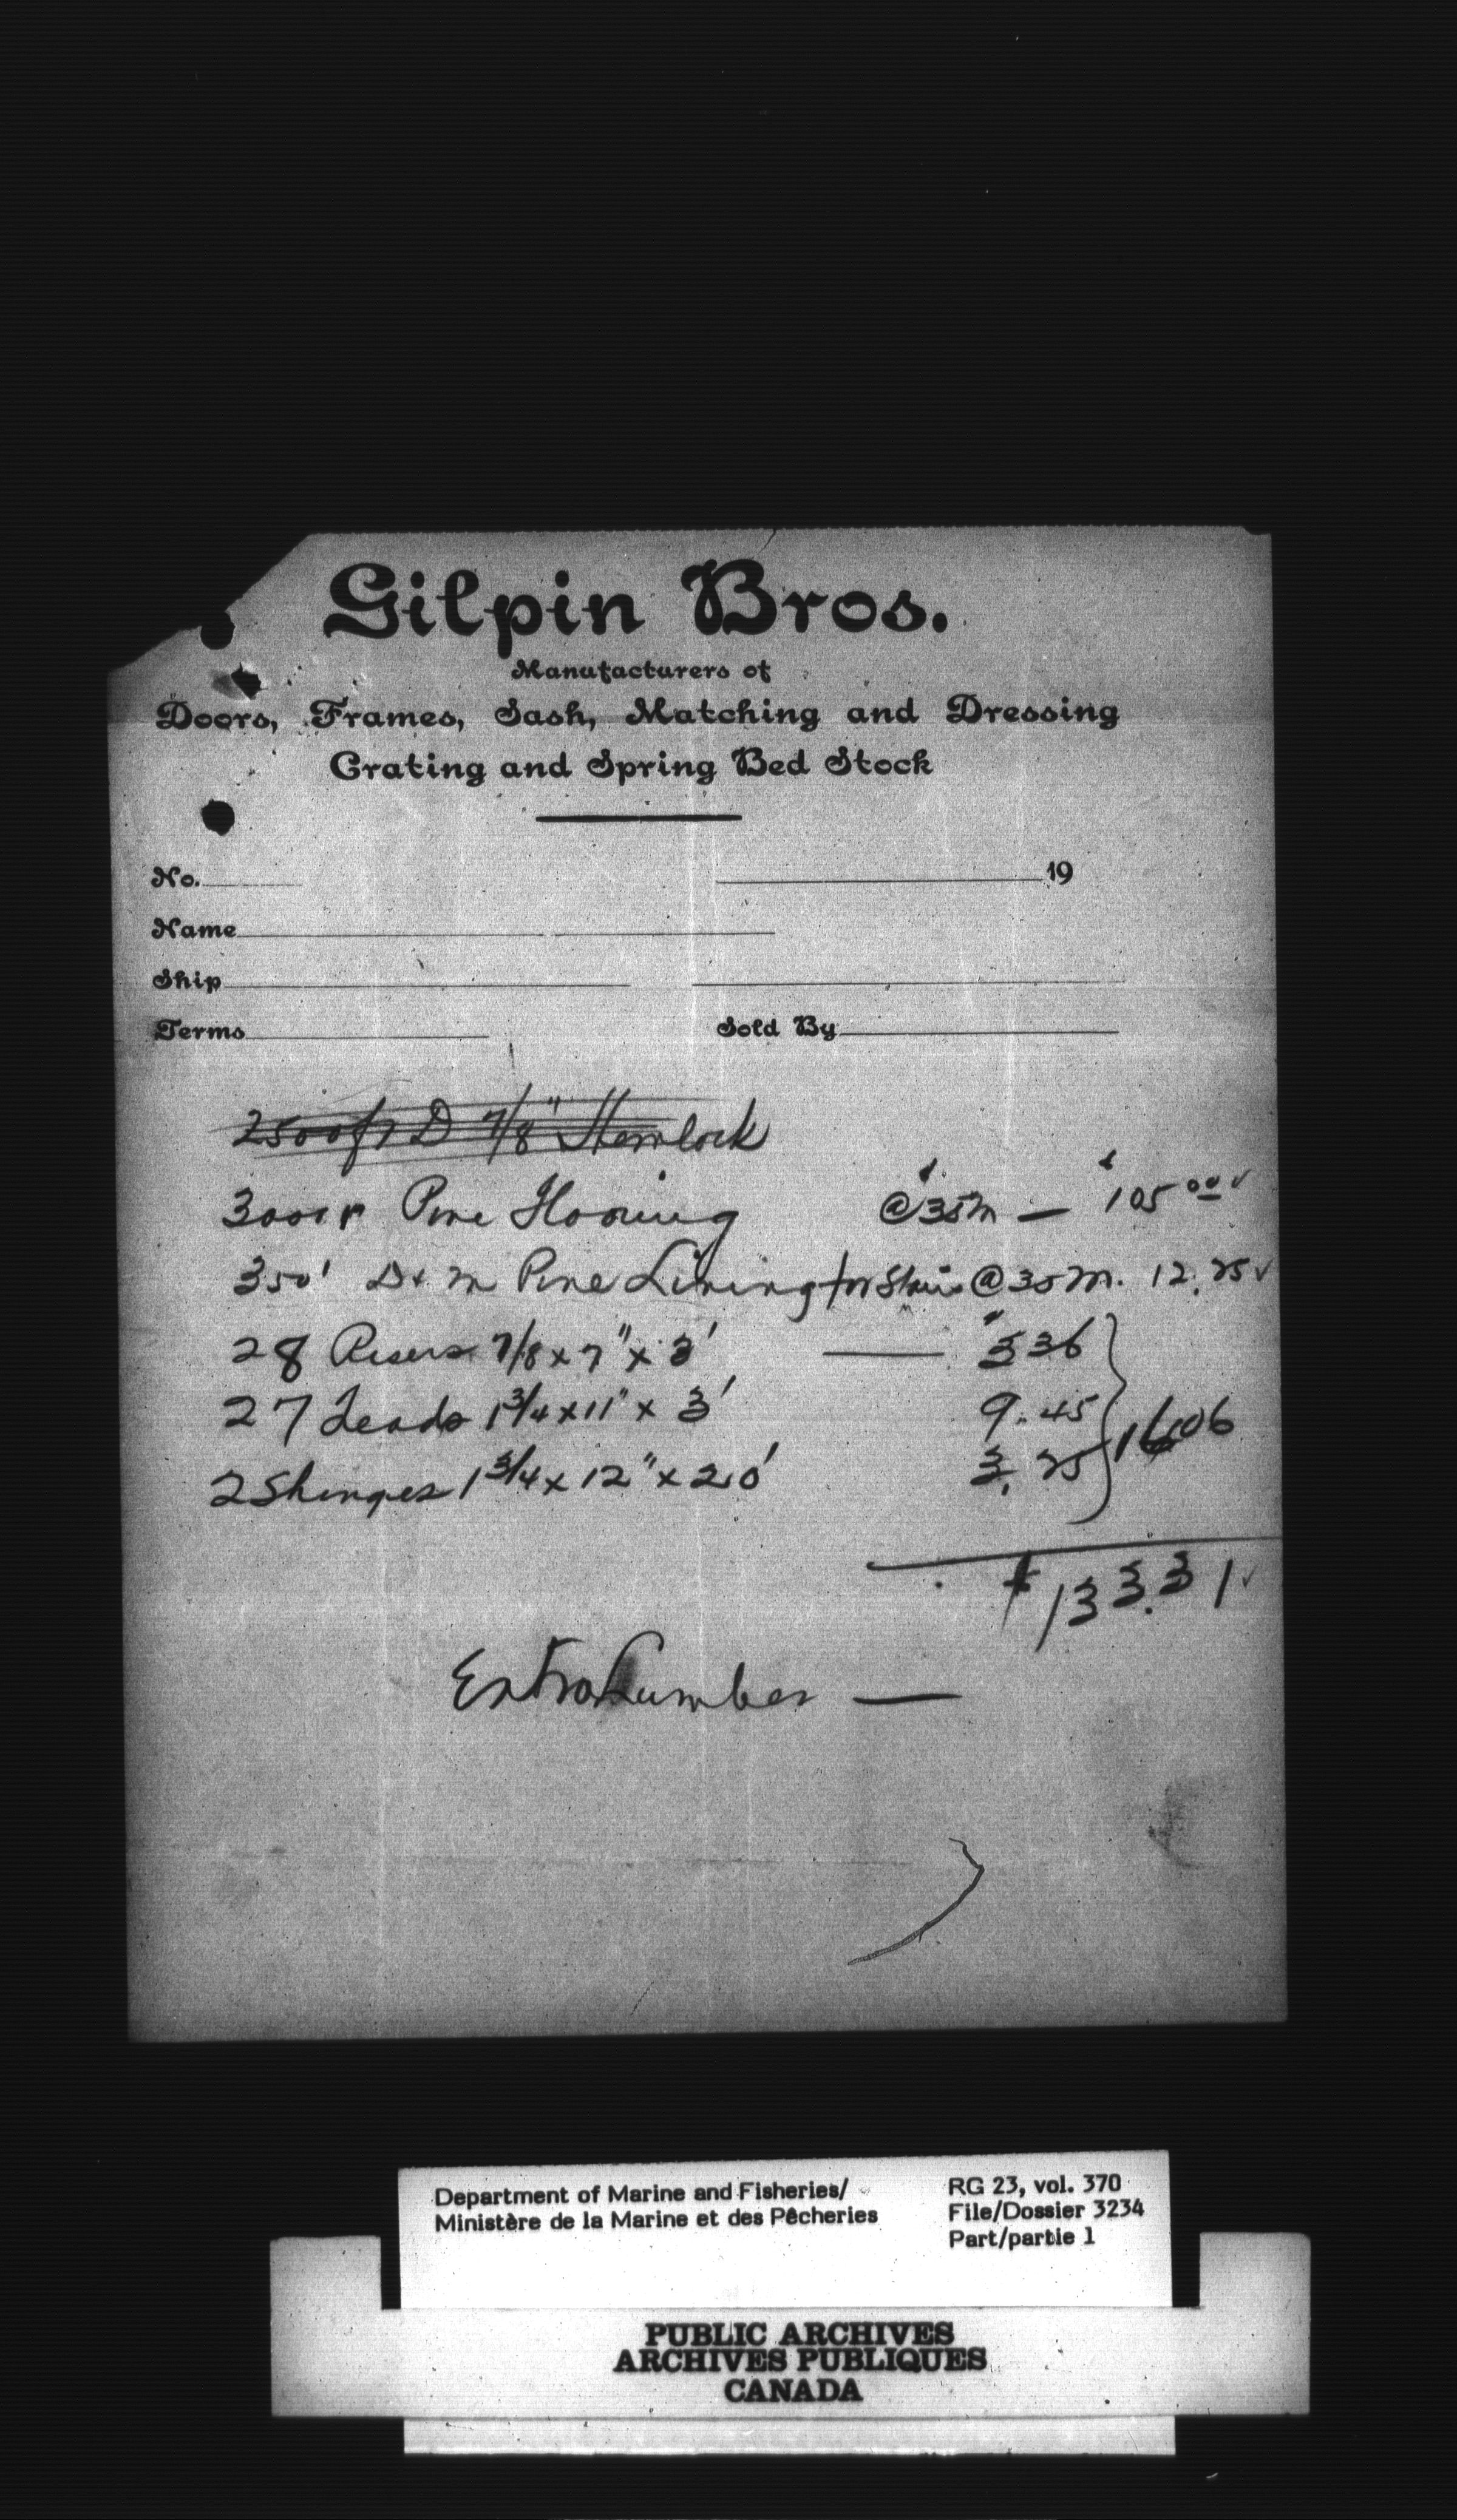 Gilpin Bros.
Manufacturers of
Doors, Frames, Sash, Matching and Dressing
Crating and Spring Bed Stock
No. 19
Name
Ship
Terms Sold By
2500 ft D 7/8" Hemlock
3000 Pine Flooring @ 35 M — $105.00
350' D & M Pine Lining for @ 35 M. 12.25
28 Risers 7/8 x 7" x 3' — 336
27 Treads 1 3/4 x 11" x 3' 9.45
2 1 3/4 x 12" x 20' 3.25 1606
$133.31
Extra Lumber —
Department of Marine and Fisheries/
Ministère de la Marine et des Pêcheries
RG 23, vol. 370
File/Dossier 3234
Part/partie 1
PUBLIC ARCHIVES
ARCHIVES PUBLIQUES
CANADA